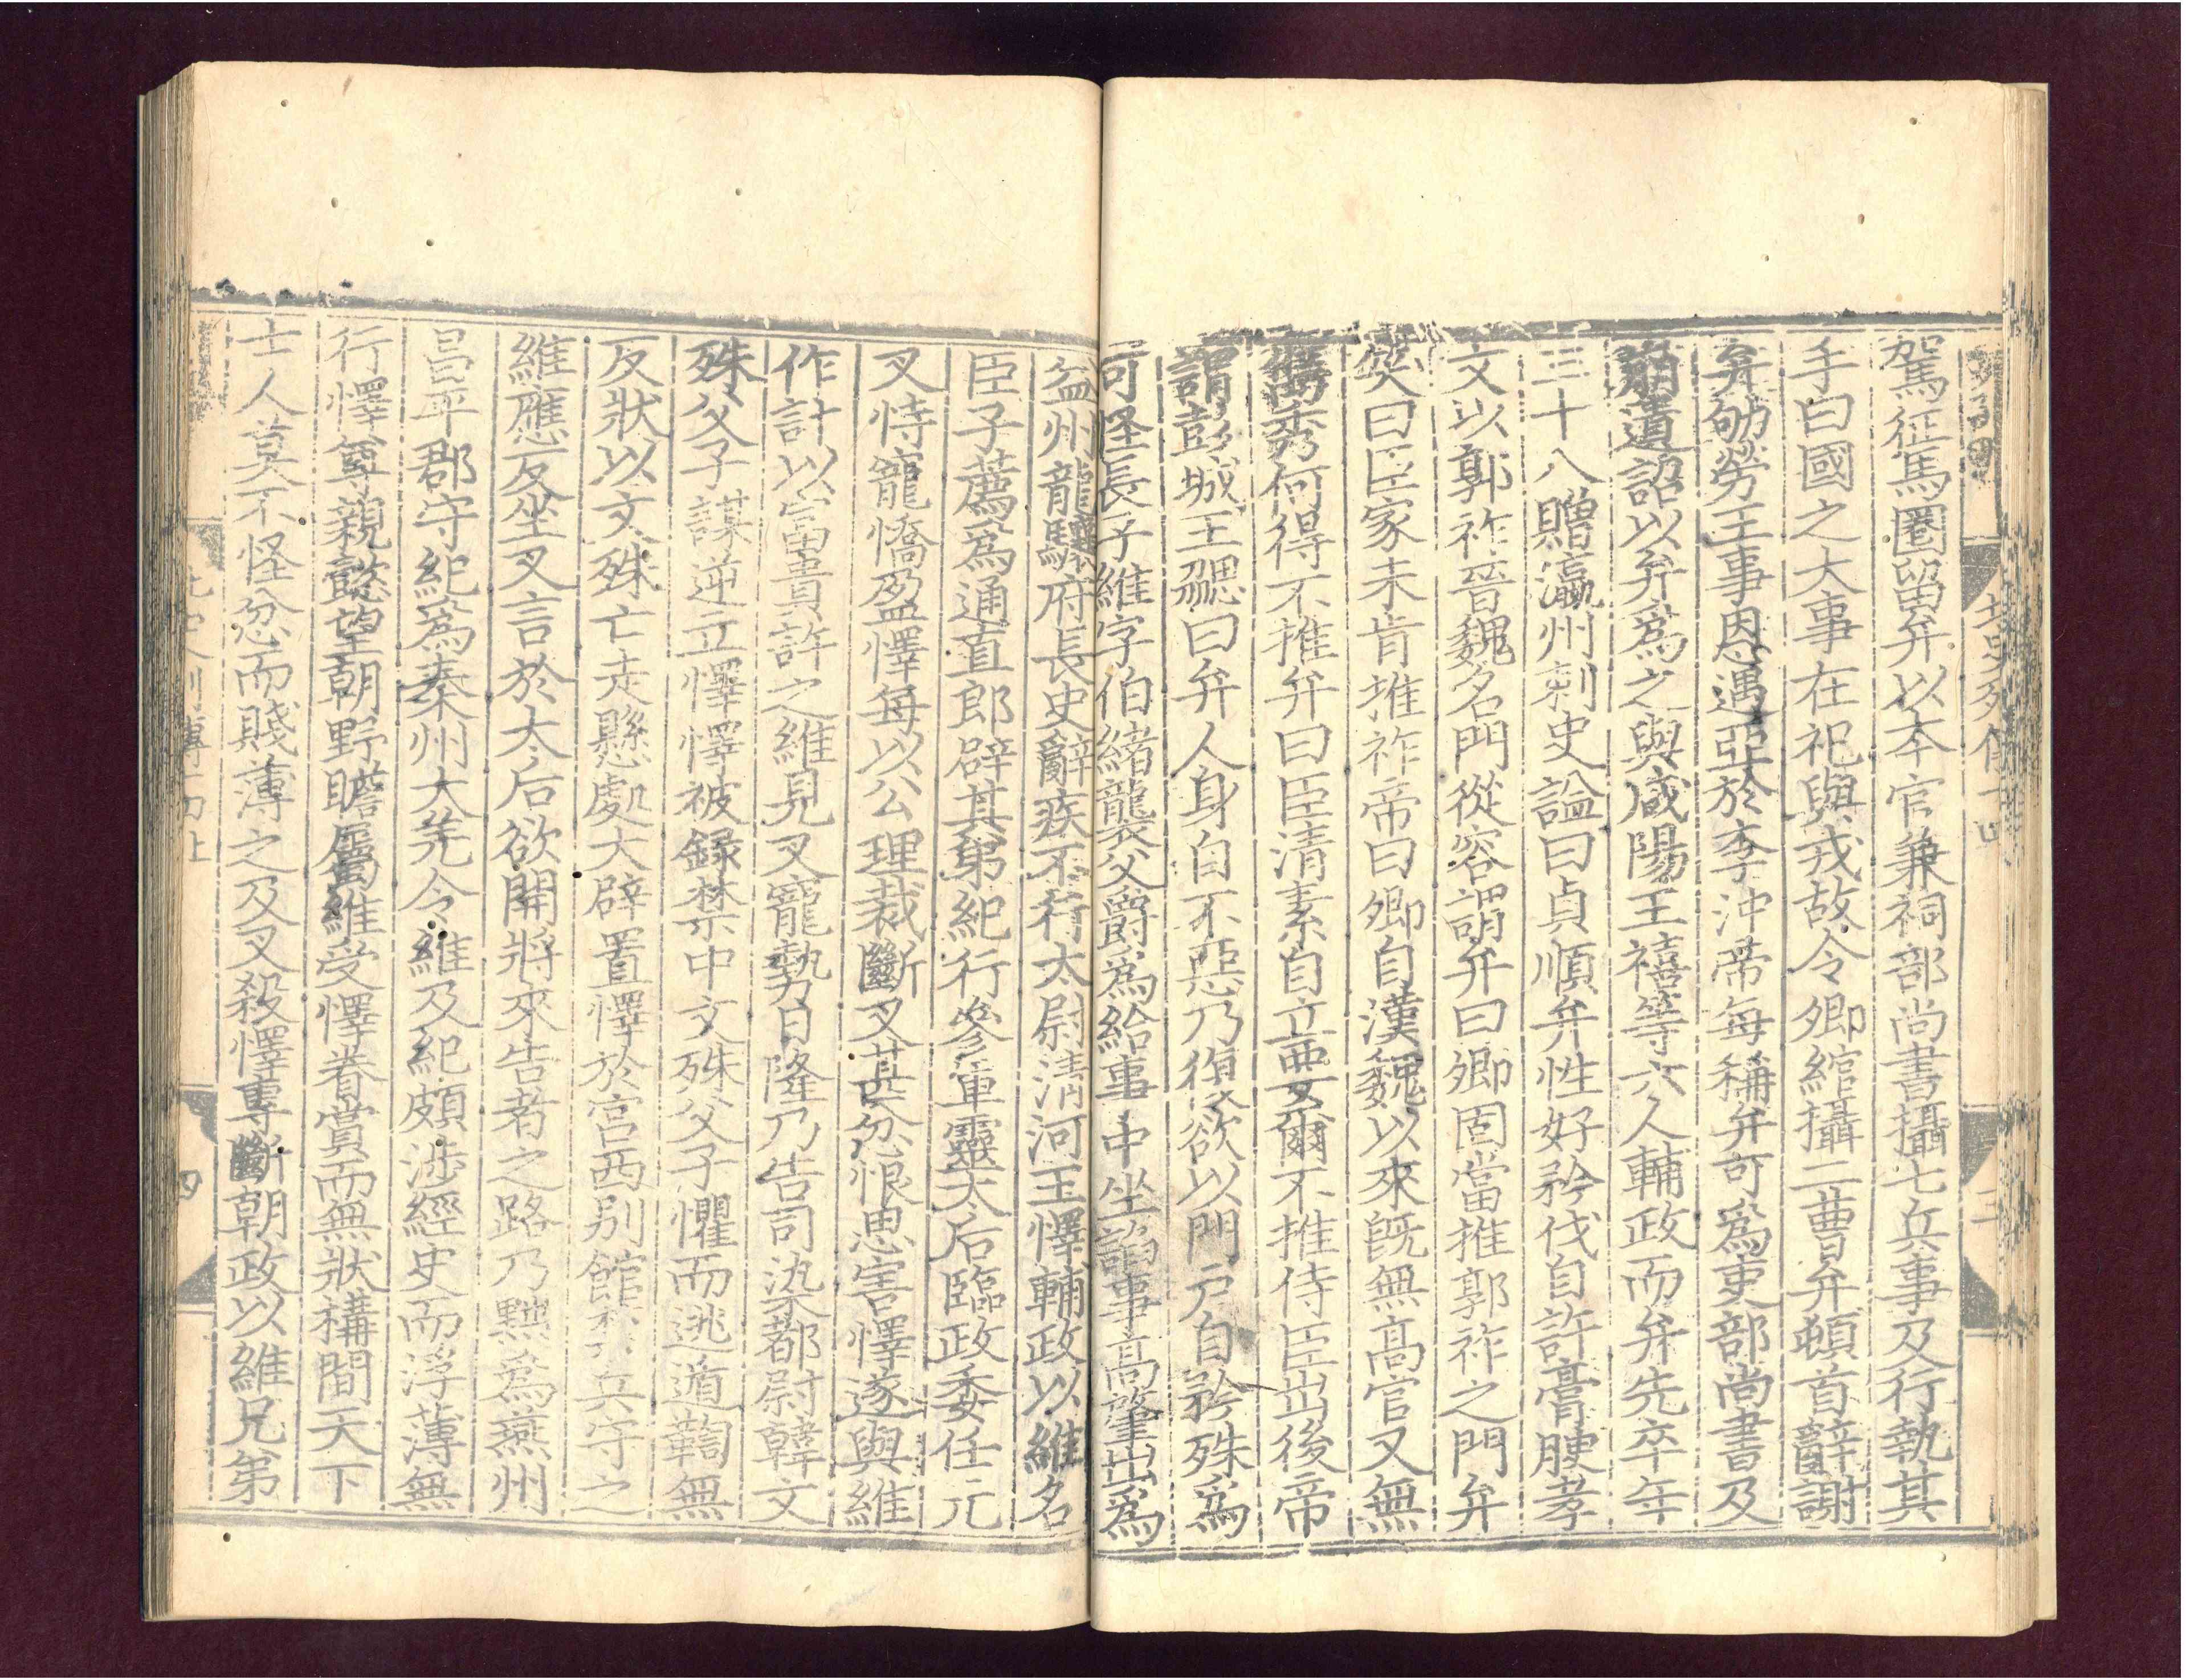 北史列傳十四
三
駕征馬圈留弁以本官兼祠部尚書攝七兵事及行執其
手曰國之大事在祀與戎故令卿綰攝二曹弁頓首辭謝
弁劬勞王事恩遇亞於李沖帝每稱弁可爲吏部尚書及
崩遺詔以弁爲之與咸陽王禧等六人輔政而弁先卒年
三十八贈瀛州刺史謚曰貞順弁性好矜伐自許膏腴孝
文以郭祚晉魏名門從容謂弁曰卿固當推郭祚之門弁
笑曰臣家未肯推祚帝曰卿自漢魏以來旣無高官又無
儁秀何得不推弁曰臣清素自立要爾不推侍臣出後帝
謂彭城王勰曰弁人身自不惡乃復欲以門戶自矜殊爲
可怪長子維字伯緒襲父爵爲給事中坐諂事高肇出爲
益州龍驤府長史辭疾不行太尉清河王懌輔政以維名
臣子薦爲通直郎辟其弟紀行參軍靈太后臨政委任元
叉恃寵憍盈懌每以公理裁斷叉甚忿恨思害懌遂與維
作計以富貴許之維見叉寵勢日隆乃告司染都尉韓文
殊父子謀逆立懌懌被録禁中文殊父子懼而逃遁鞫無
反狀以文殊亡走懸處大辟置懌於宮西別館禁兵守之
維應反坐叉言於太后欲開將來告者之路乃黜爲燕州
昌平郡守紀爲秦州大羌令維及紀頗涉經史而浮薄無
行懌尊親懿望朝野瞻屬維受懌眷賞而無狀構間天下
士人莫不怪忿而賤薄之及叉殺懌專斷朝政以維兄弟
列傳十四上
四